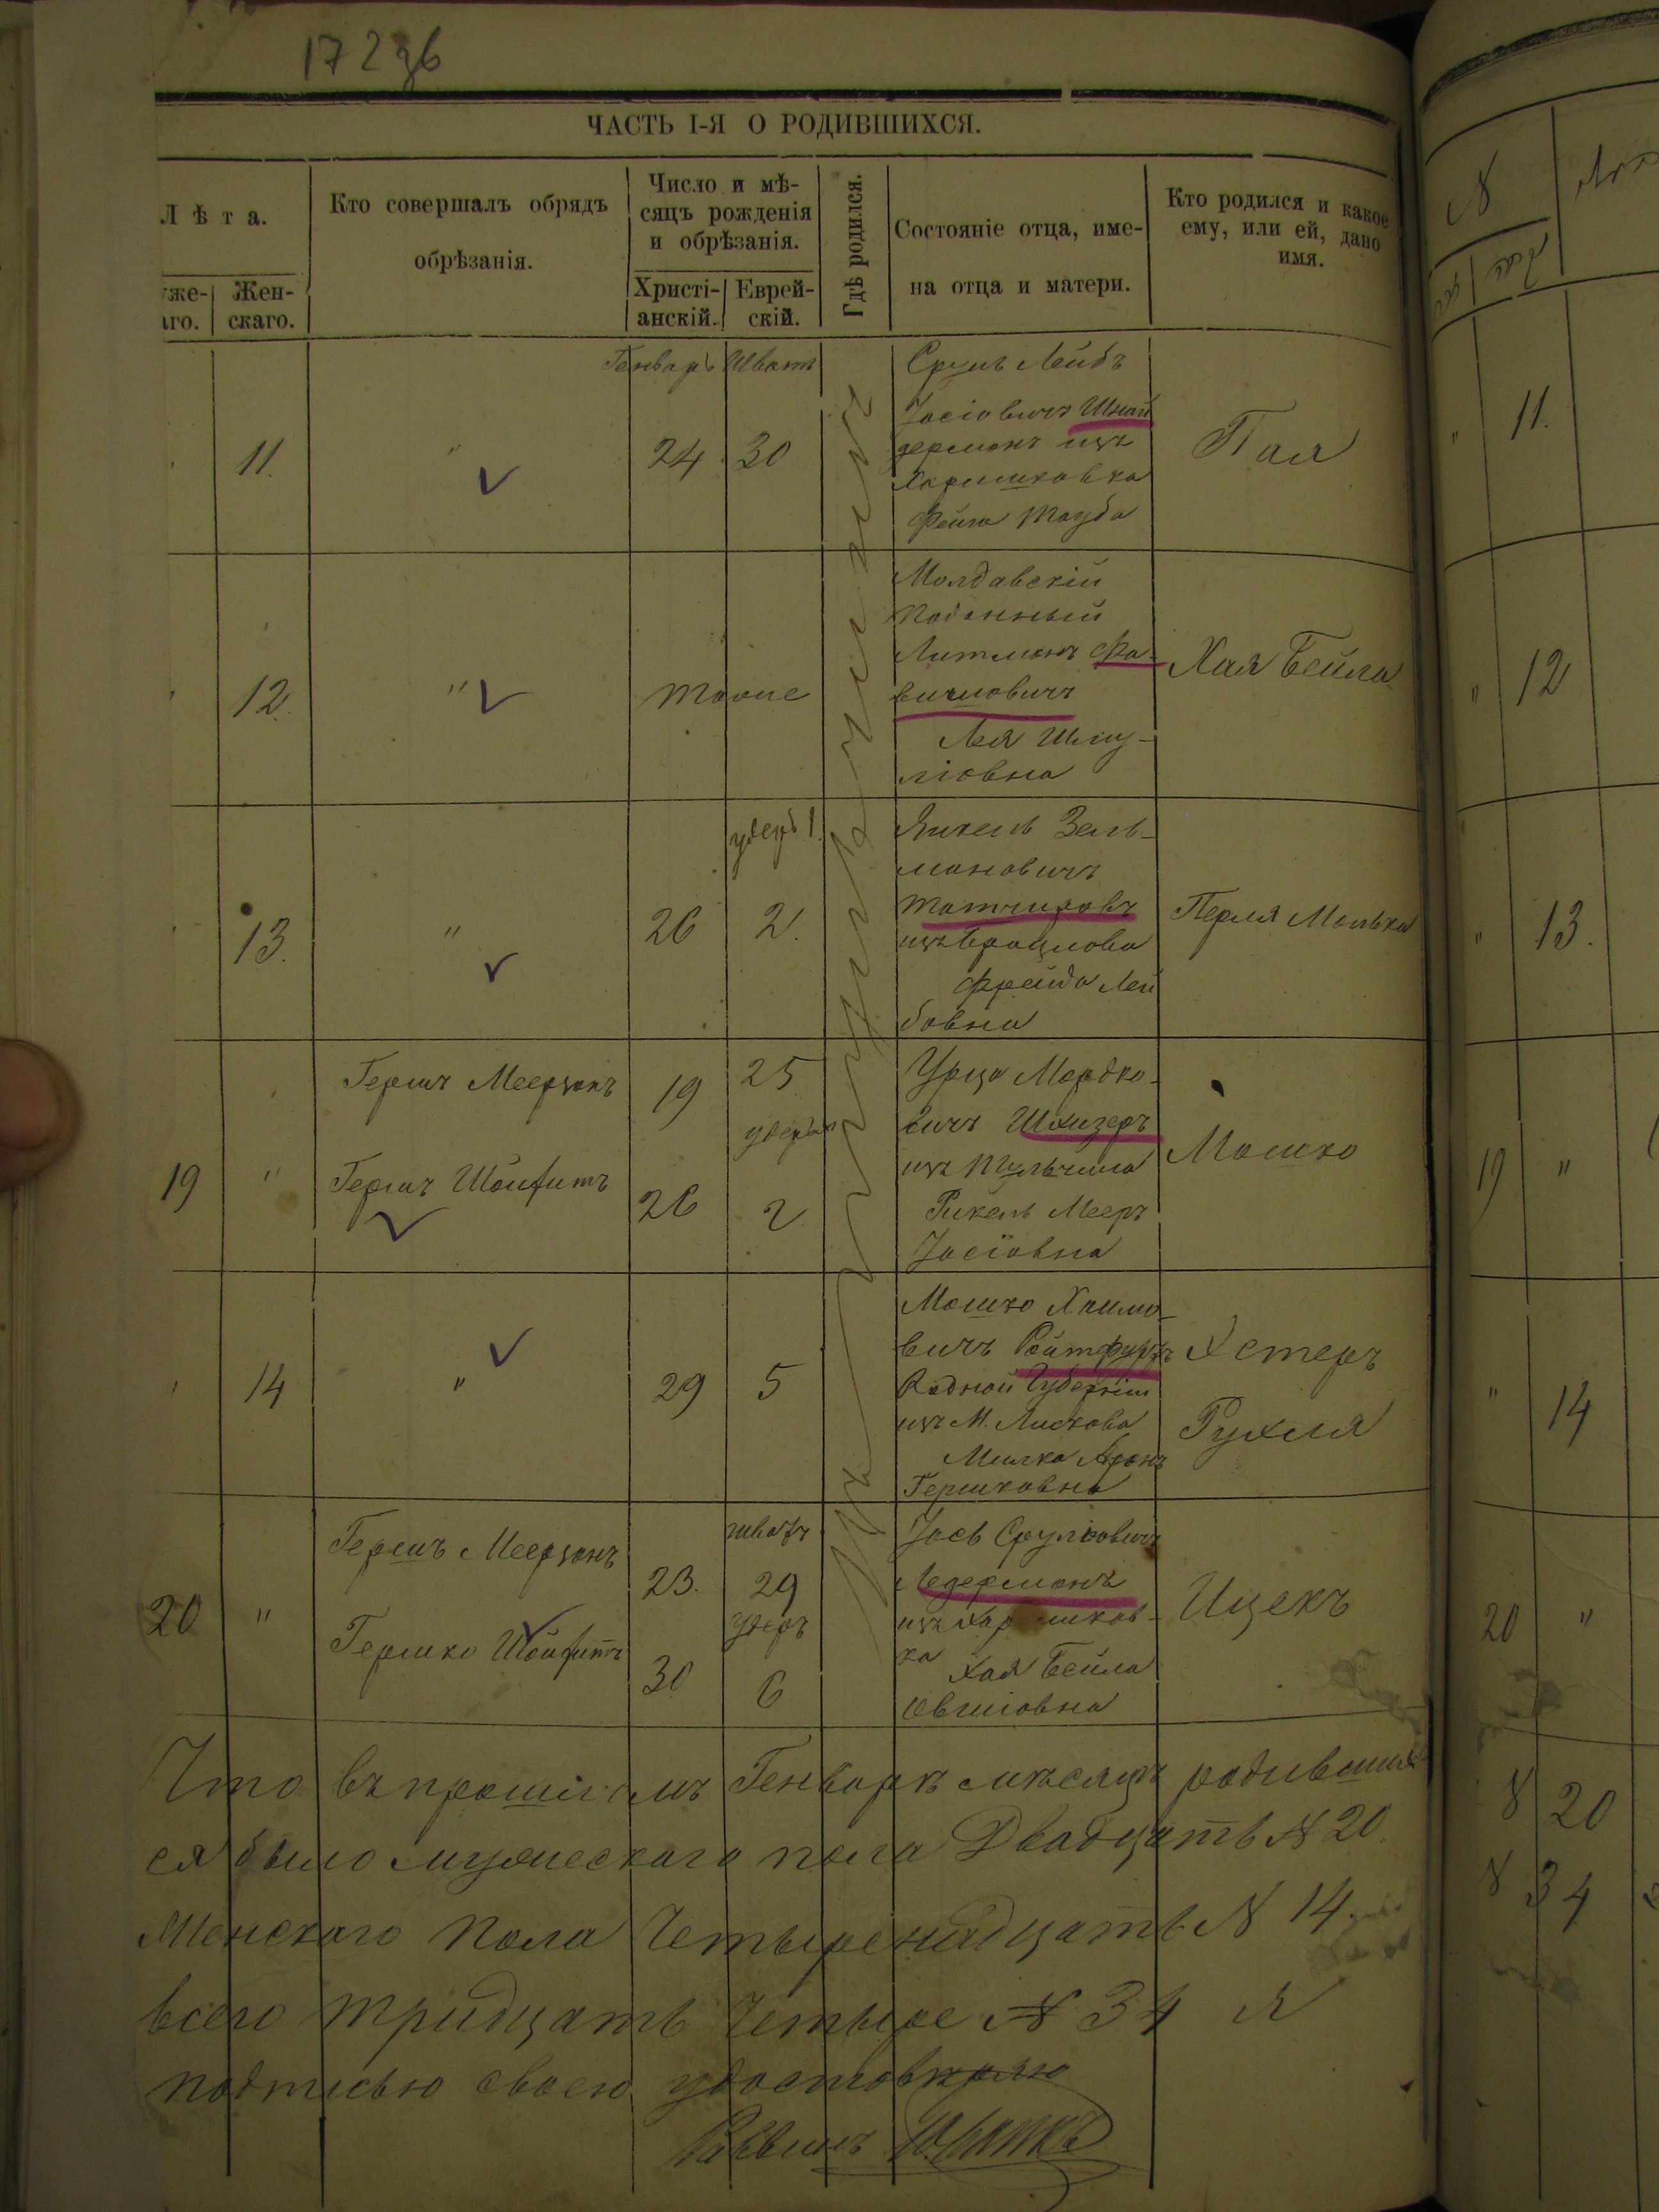 172 об
ЧАСТЬ I-Я О РОДИВШИХСЯ.
Лѣта.
Женскаго.
Кто совершалъ обрядъ
обрѣзанія.
Число и мѣ-
сяцъ рожденія
и обрѣзанія.
Христі-
анскій.
Еврей-
скій.
Гдѣ родился.
Состояніе отца, име-
на отца и матери.
Кто родился и какое
ему, или ей, дано
имя.
Генварь Шватъ
11. " 24 30
Сруль Лейбъ
Іосіовичъ Шнай
дерманъ изъ
Фейга Тауба
12. "
Молдавскій
Подданный
Литманъ
Лея Шму-
ліовна
Хая Бейла
13. " 26 2.
Янкель Зель-
мановичъ
изъ Брацлова
Фрейда Лей
бовна
Перля Малька
19 "
Гершъ Меерзонъ
Гершъ Шойфитъ
19 25
26 2
Урца Мордко-
вичъ
изъ Тульчина
Рикель Мееръ
Іосіовна
Мошко
14 " 29 5
Мошко Хаимо-
вичъ
Губерніи
изъ М.
Милка Аронъ
Гершковна
Эстеръ
Рухля
20 "
Гершъ Меерзонъ
Гершко Шойфитъ
шватъ
23. 29
30 6
Іось Сруліовичъ
Ледерманъ
изъ
ка Хая Бейла
Овшіовна
Ицекъ
Что въ прошломъ Генварѣ мѣсяцѣ родивших
ся было мужескаго пола Двадцать № 20.
Женскаго Пола Четыренадцать № 14
всего тридцать Четыре № 34 Я
подписью своею удостовѣряю
Раввинъ
11.
12
13.
19 "
14
20 "
20
34